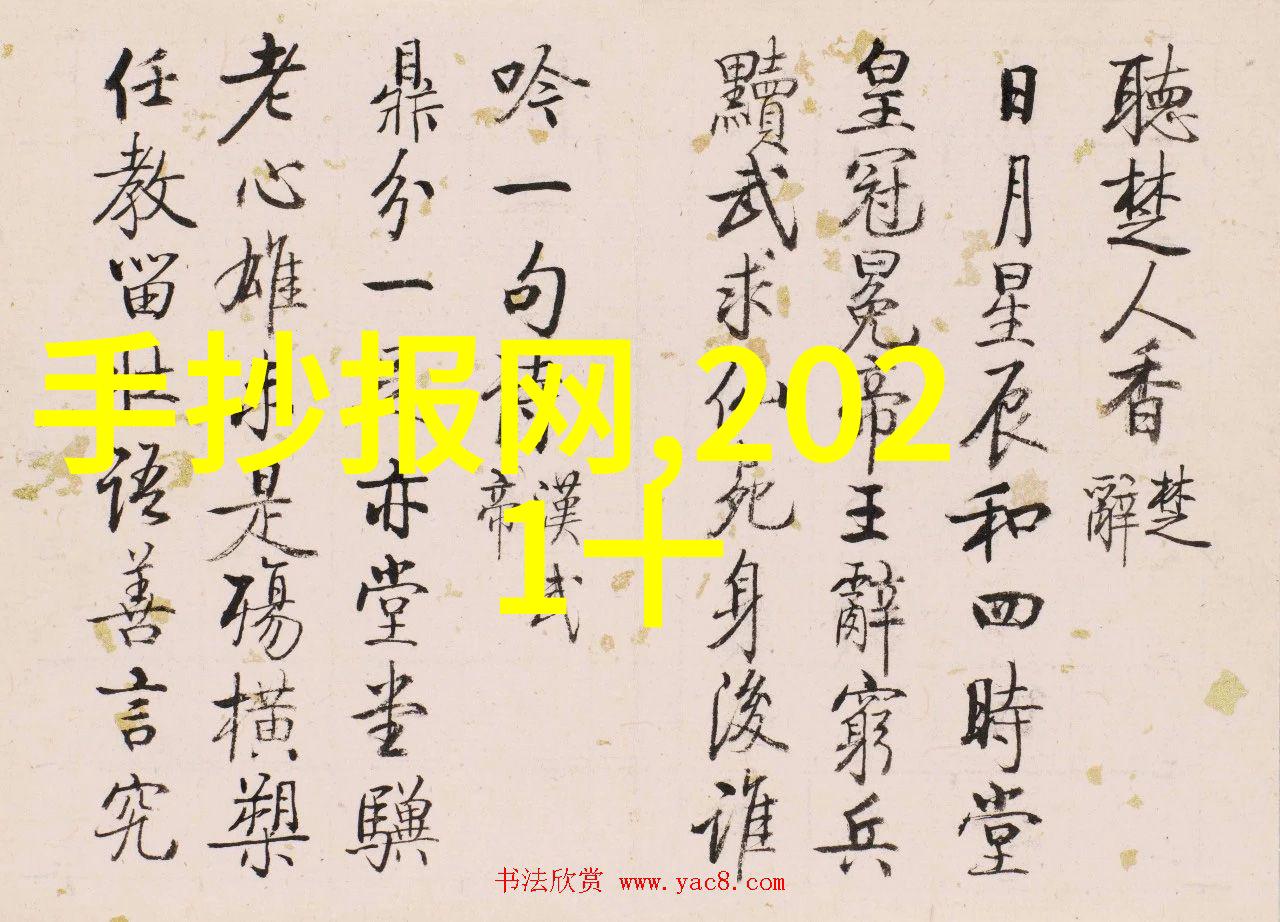 聽楚人香 楚辭
日月星辰和四時堂
皇冠冕帝王辭窮兵
黷武求仙死身後誰
吟一句詩 漢武帝
鼎分一亦堂堂驥
老心雄未是殤橫槊
任教留世語善言究
手抄报网,202
1十
书法欣赏 www.yac8.com